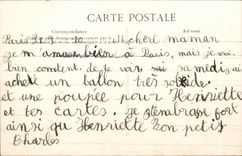 CARTE POSTALE
Correspondance Adresse
Paris chère maman
je m amuse bien à Paris, mais je serai
bien comtent de te voir sa medi, ai
acheté un ballon très solide
et une poupée pour Henriette
et tes cartes. je t'embrasse fort
ainsi qu Henriette ton petit
Charles